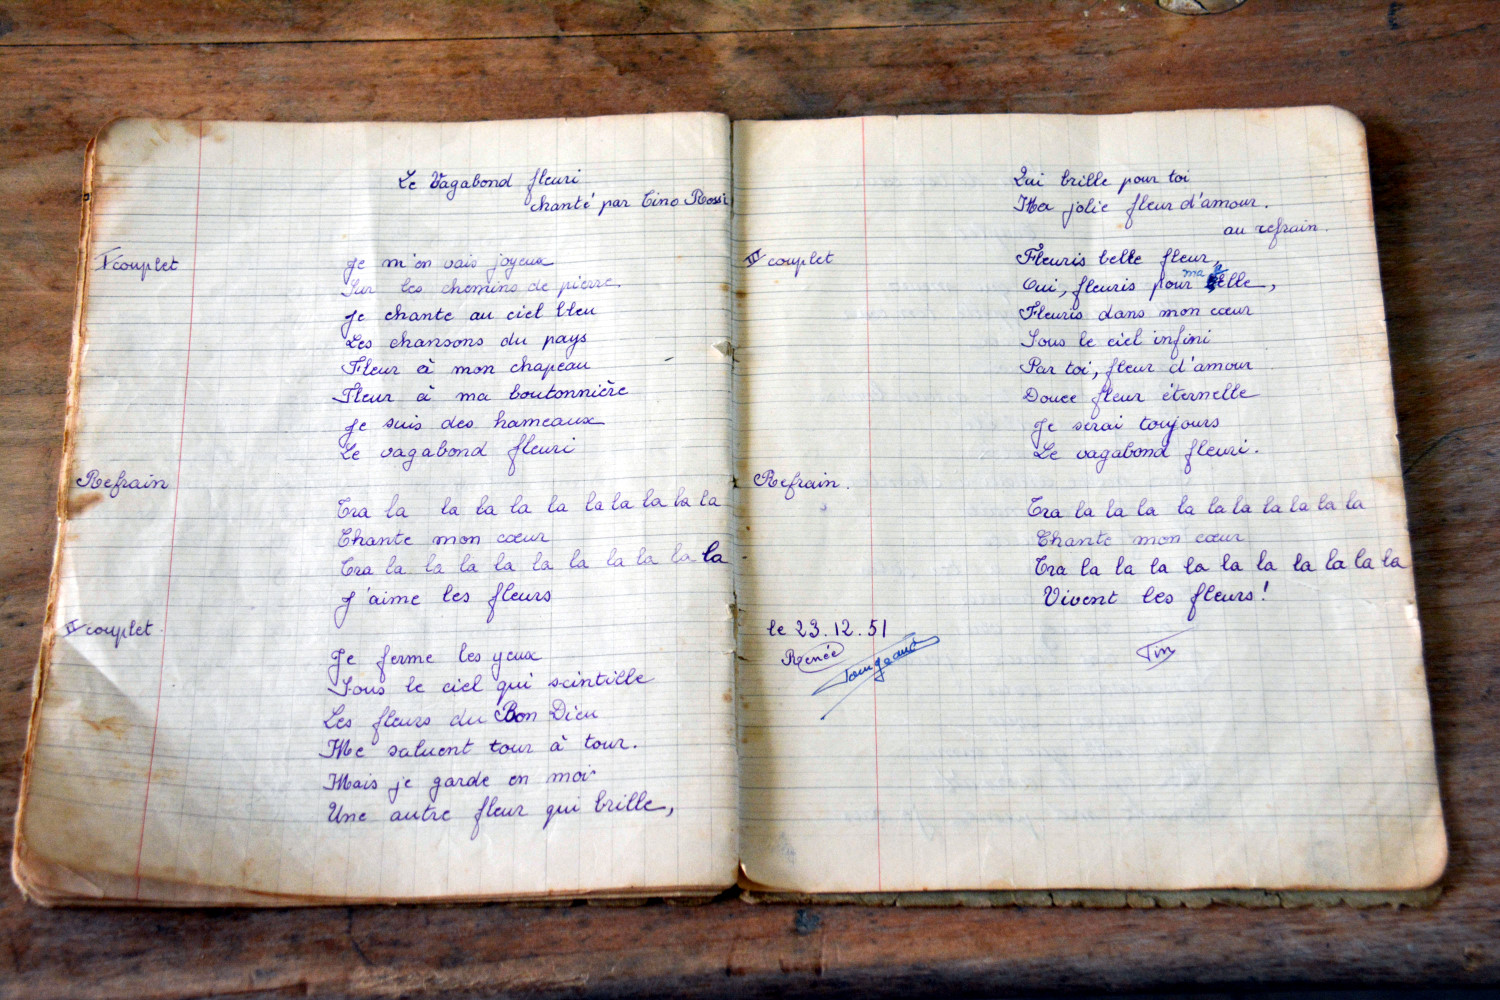 Le Vagabond fleuri
chanté par Tino Rossi
I couplet
Je m'en vais joyeux
Sur les chemins de pierre
Je chante au ciel bleu
Les chansons du pays
Fleur à mon chapeau
Fleur à ma boutonnière
Je suis des hameaux
Le vagabond fleuri
Refrain
Tra la la la la la la la la la la
Chante mon cœur
Tra la la la la la la la la la la
J'aime les fleurs
II couplet
Je ferme les yeux
Sous le ciel qui scintille
Les fleurs du Bon Dieu
Me saluent tour à tour.
Mais je garde en moi
Une autre fleur qui brille,
Qui brille pour toi
Ma jolie fleur d'amour.
au refrain.
III couplet
Fleuris belle fleur,
Oui, fleuris pour ma belle,
Fleuris dans mon cœur
Sous le ciel infini
Par toi, fleur d'amour
Douce fleur éternelle
Je serai toujours
Le vagabond fleuri.
Refrain.
Tra la la la la la la la la la la
Chante mon cœur
Tra la la la la la la la la la la
Vivent les fleurs!
le 23.12.51
Renée
Fin